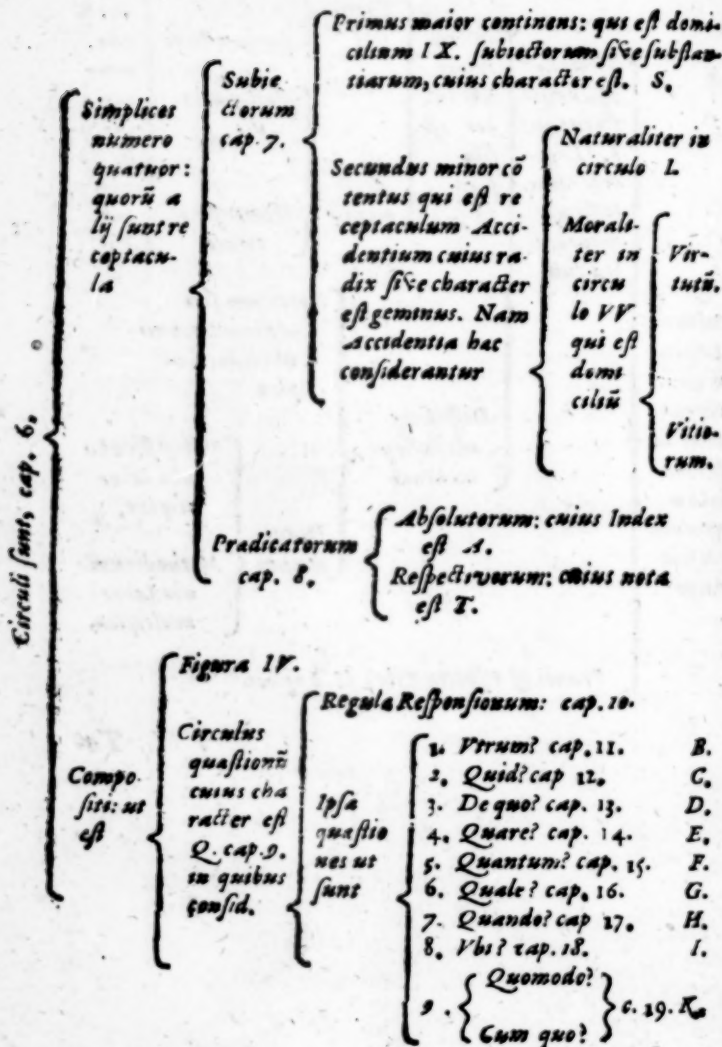 Circuli sunt, cap. 6.
Simplices
numero
quatuor:
quorū a
lij sunt re
ceptacu-
la
Subie
ctorum
cap. 7.
Primus maior continens: qui est domi-
cilium IX. subiectorum sive substan-
tiarum, cuius character est. S.
Secundus minor cō
tentus qui est re
ceptaculum Acci-
dentium cuius ra-
dix sive character
est geminus. Nam
accidentia hac
considerantur
Naturaliter in
circulo I.
Morali-
ter in
circu
lo VV
qui est
domi
ciliū
Vir-
tutū.
Vitio-
rum.
Pradicatorum
cap. 8.
Absolutorum: cuius Index
est A.
Respectivorum: cuius nota
est T.
Compo-
siti: ut
est
Figura IV.
Circulus
quastionū
cuius cha
racter est
Q. cap. 9.
in quibus
consid.
Regula Responsionum: cap. 10.
Ipsa
quastio
nes ut
sunt
1. Vtrum? cap. 11. B.
2. Quid? cap 12. C.
3. De quo? cap. 13. D.
4. Quare? cap. 14. E.
5. Quantum? cap. 15. F.
6. Quale? cap. 16. G.
7. Quando? cap 17. H.
8. Vbi? cap. 18. I.
9. Quomodo?
Cum quo? c. 19. K.